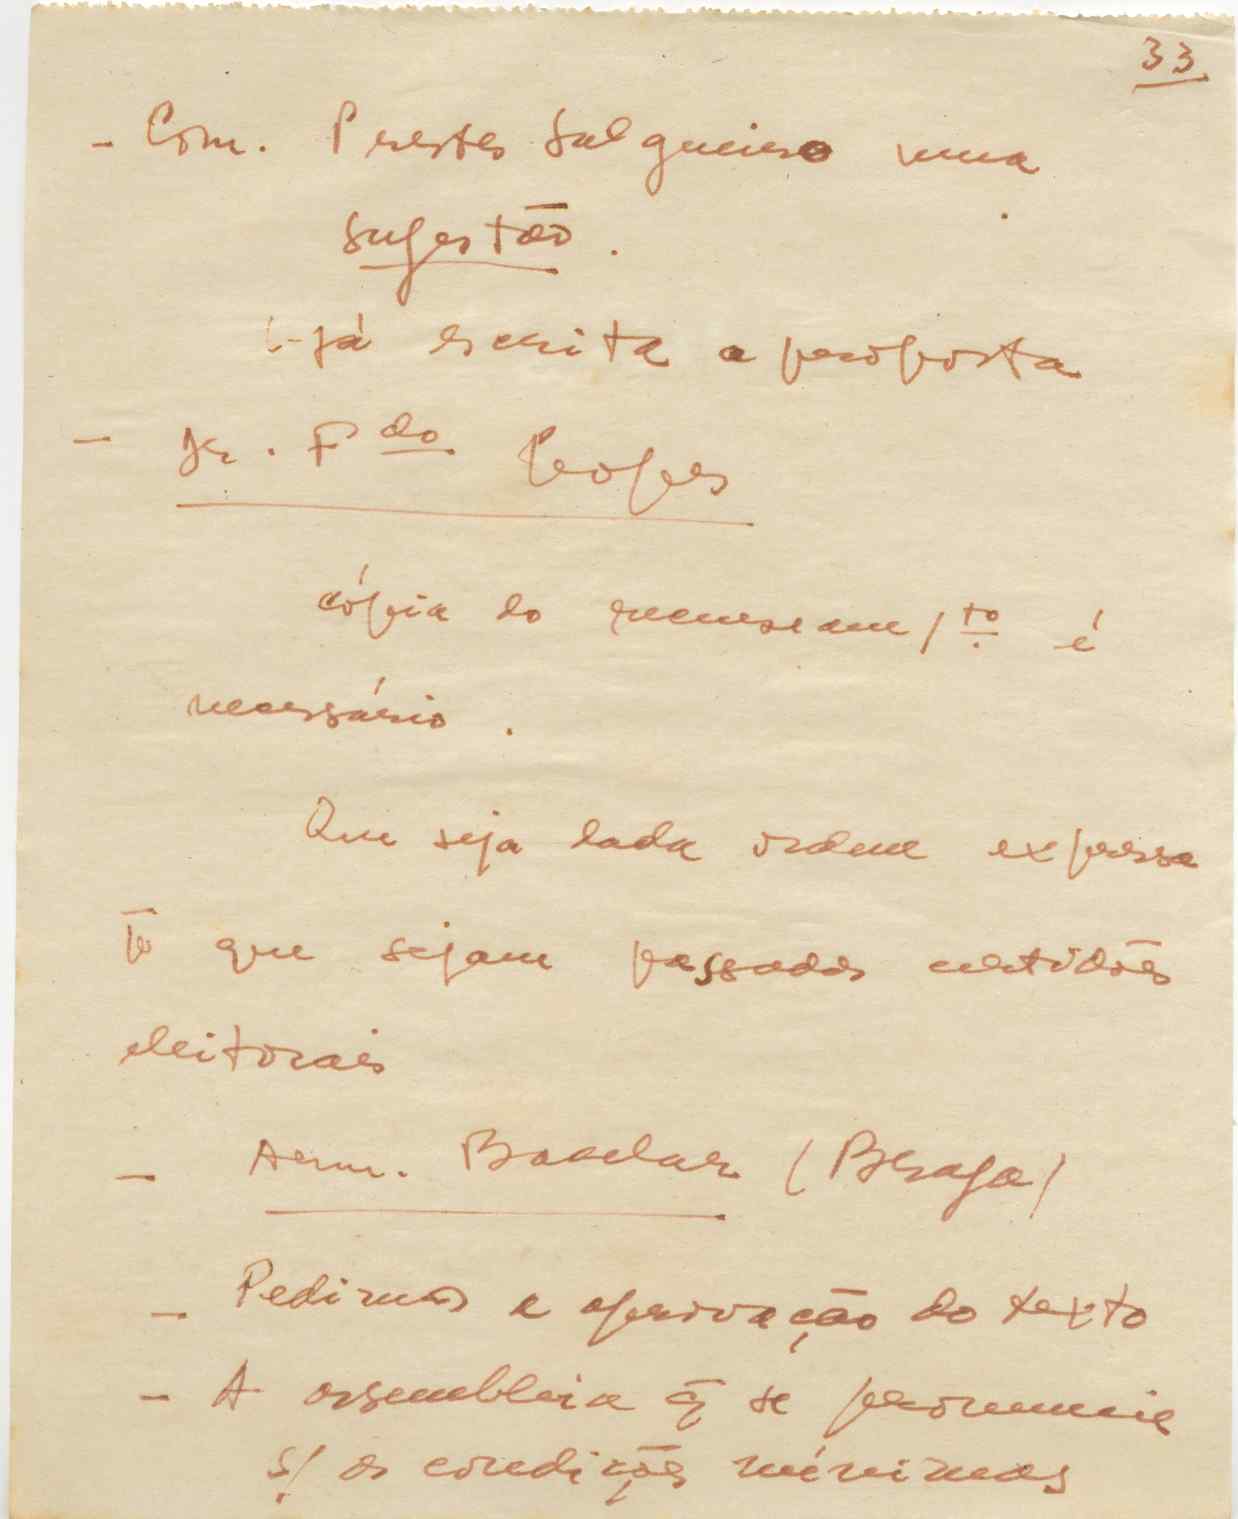 33
- Com. Prestes Salgueiro uma
sugestão.
já escrita a proposta
- Dr. F.do Lopes
cópia do recenseam/to é
necessário.
Que seja dada ordem expressa
p̄ que sejam passados certidões
eleitorais
- Arm. Bacelar (Braga)
- Pedimos a aprovação do texto
- A assembleia q̄ se pronuncie
s/ as condições mínimas